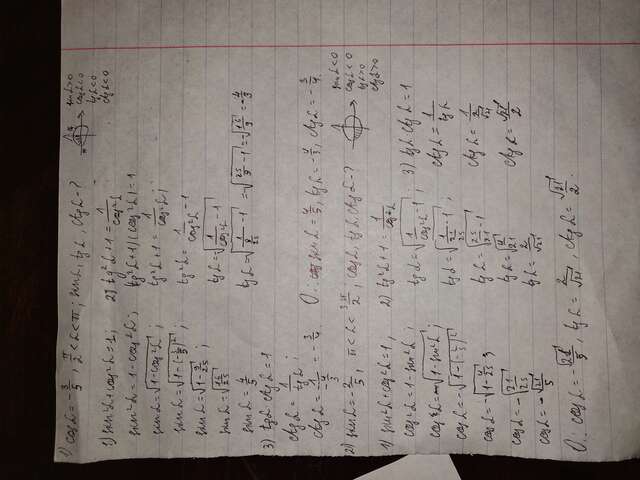 1) cos L = -3/5, π/2 < L < π; sin L, tg L, ctg L - ?
sin L > 0
cos L < 0
tg L < 0
ctg L < 0
1) sin²L + cos²L = 1;
sin²L = 1 - cos²L;
sin L = √(1 - cos²L);
sin L = √(1 - (-3/5)²);
sin L = √(1 - 9/25);
sin L = √(16/25)
sin L = 4/5
2) tg²L + 1 = 1/cos²L
(tg²L + 1)(cos²L) = 1
tg²L + 1 = 1/cos²L;
tg²L = 1/cos²L - 1
tg L = -√(1/cos²L - 1)
tg L = -√(1/(9/25) - 1) = -√(25/9 - 1) = -√(16/9) = -4/3
3) tg L · ctg L = 1
ctg L = 1/tg L;
ctg L = 1/(-4/3) = -3/4.
О.: sin L = 4/5, tg L = -4/3, ctg L = -3/4.
2) sin L = -2/5, π < L < 3π/2; cos L, tg L, ctg L - ?
sin L < 0
cos L < 0
tg L > 0
ctg L > 0
1) sin²L + cos²L = 1,
cos²L = 1 - sin²L;
cos L = -√(1 - sin²L);
cos L = -√(1 - (-2/5)²)
cos L = -√(1 - 4/25);
cos L = -√(21/25)
cos L = -√21/5
2) tg²L + 1 = 1/cos²L
tg L = √(1/cos²L - 1);
tg L = √(1/(21/25) - 1);
tg L = √(25/21 - 1)
tg L = √(4/21)
tg L = 2/√21
3) tg L · ctg L = 1
ctg L = 1/tg L
ctg L = 1/(2/√21)
ctg L = √21/2
О.: cos L = -√21/5, tg L = 2/√21, ctg L = √21/2.